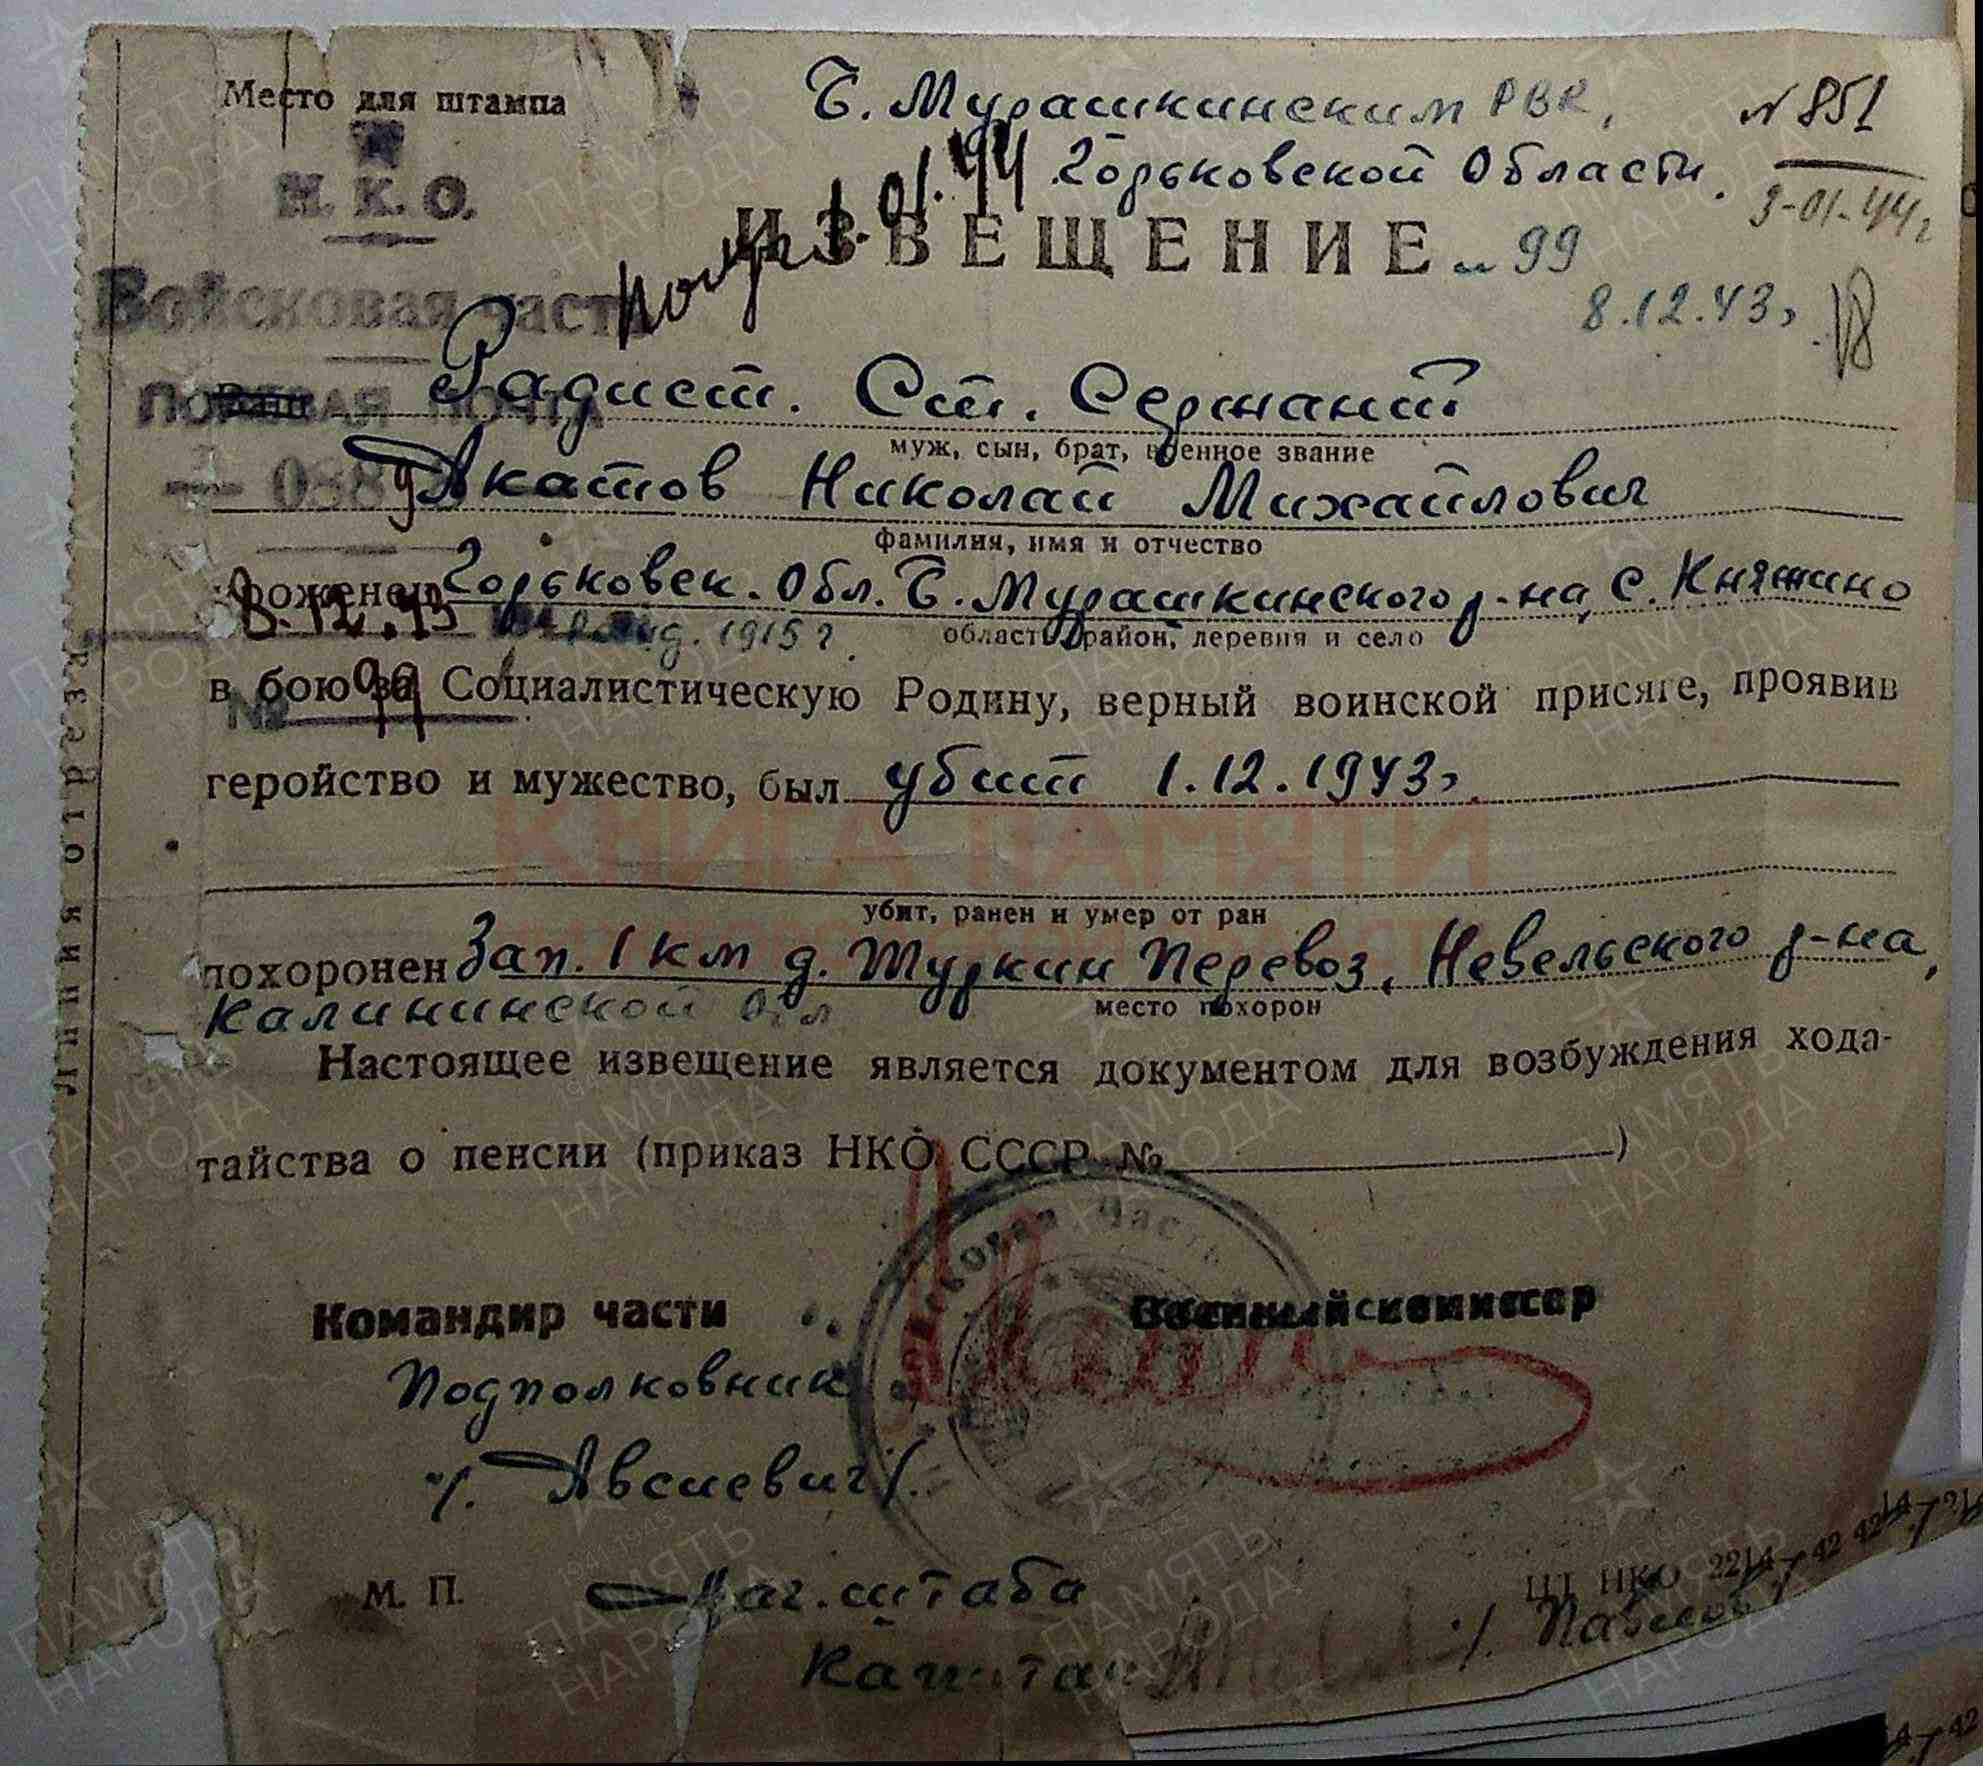 Место для штампа
Б. Мурашкинским РВК,
№ 851
Горьковской Области.
3-01-44г
Получ 1.01.44
Н. К. О.
ИЗВЕЩЕНИЕ № 99
8.12.43г
Войсковая часть
ПОЛЕВАЯ ПОЧТА
Радист. Ст. Сержант
муж, сын, брат, военное звание
Акатов Николай Михайлович
фамилия, имя и отчество
уроженец Горьковск. Обл. Б. Мурашкинского р-на, с. Княжино
8.12.43
1915 г.
область, район, деревня и село
в бою за Социалистическую Родину, верный воинской присяге, проявив
№ 99
геройство и мужество, был убит 1.12.1943г.
убит, ранен и умер от ран
похоронен Зап. 1 км д. Туркин Перевоз, Невельского р-на,
Калининской Обл
место похорон
Настоящее извещение является документом для возбуждения хода-
тайства о пенсии (приказ НКО СССР № )
Войсковая часть
Командир части
Военный комиссар
Подполковник
/. Авсиевич /.
М. П.
Нач. штаба
Капитан
ЦТ НКО 2214-42
линия отреза
КНИГА ПАМЯТИ
НИЖЕГОРОДСКОЙ ОБЛАСТИ
ПАМЯТЬ НАРОДА
1941-1945